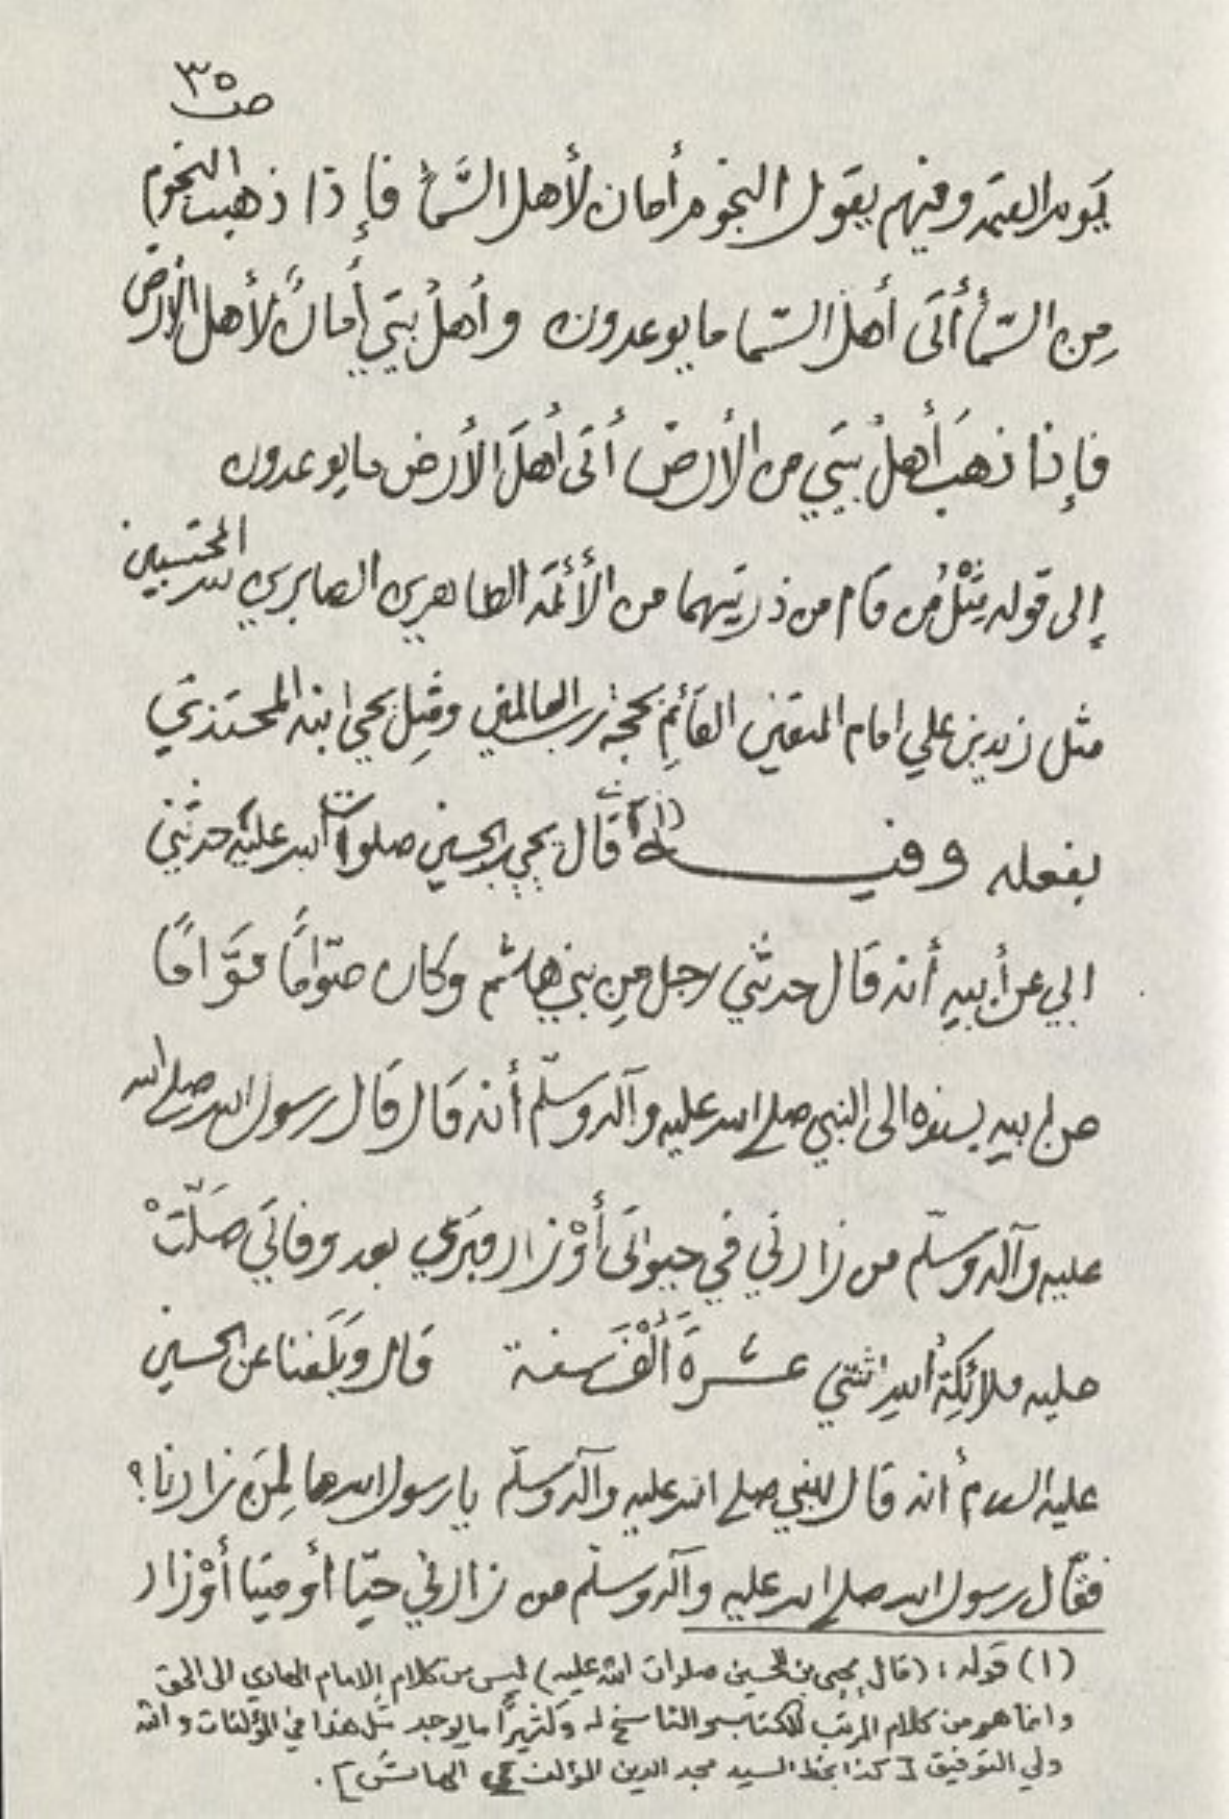 ص ٣٥
يَوم القيمة وفيهم يقول النجوم أمان لأهل السَّمأ فإذا ذهبت النجوم
مِن السّمأ أتَى أهلَ السّما ما يوعدون وأهلُ بيتَي أمانٌ لأهل الأرض
فإذا ذهبَ أهلُ بيتَي من الأرض أتَى أهلَ الأرض ما يوعدون
إلى قوله مِثْلُ من قام من ذريتهما من الأئمة الطاهرين الصابرين لله المحتسبين
مثل زيد بن علي امام المتقين القائِم بحجة رب العالمين ومثِل يحي ابنه المحتذي
بفعله وفيـــه (١) قَال يحي بن الحسين صلوات الله عليه حدثني
ابي عن أبيهِ أنه قَال حدثني رجل مِن بني هاشم وكان صوّامًا قوَّامًا
عن ابيه يسنده الى النبي صلى الله عليه وآله وسلّم أنه قَال قَال رسول الله صلى الله
عليه وآله وسلّم من زارني في حيوتَى أوْ زار قبَري بعد وفاتَي صَلّتْ
عليه ملائكِة اللهِ اثنتي عشرةَ ألْفَ سنة قَال وَبَلَغنا عن الحسين
عليه السلام أنه قَال للنبي صلى الله عليه وآله وسلّم يا رسول الله ما لِمَن زارنا؟
فقَال رسول الله صلى الله عليه وآله وسلّم من زارني حيّا أو ميتا أوْ زار
(١) قوله : (قال يحيى بن الحسين صلوات الله عليه) ليس من كلام الإمام الهادي الى الحق
وانما هو من كلام المرتب للكتاب والناسخ له وكثيرًا ما يوجد مثل هذا في المؤلفات والله
ولي التوفيق [كذا بخط السيد مجد الدين المؤلف في الهامش].